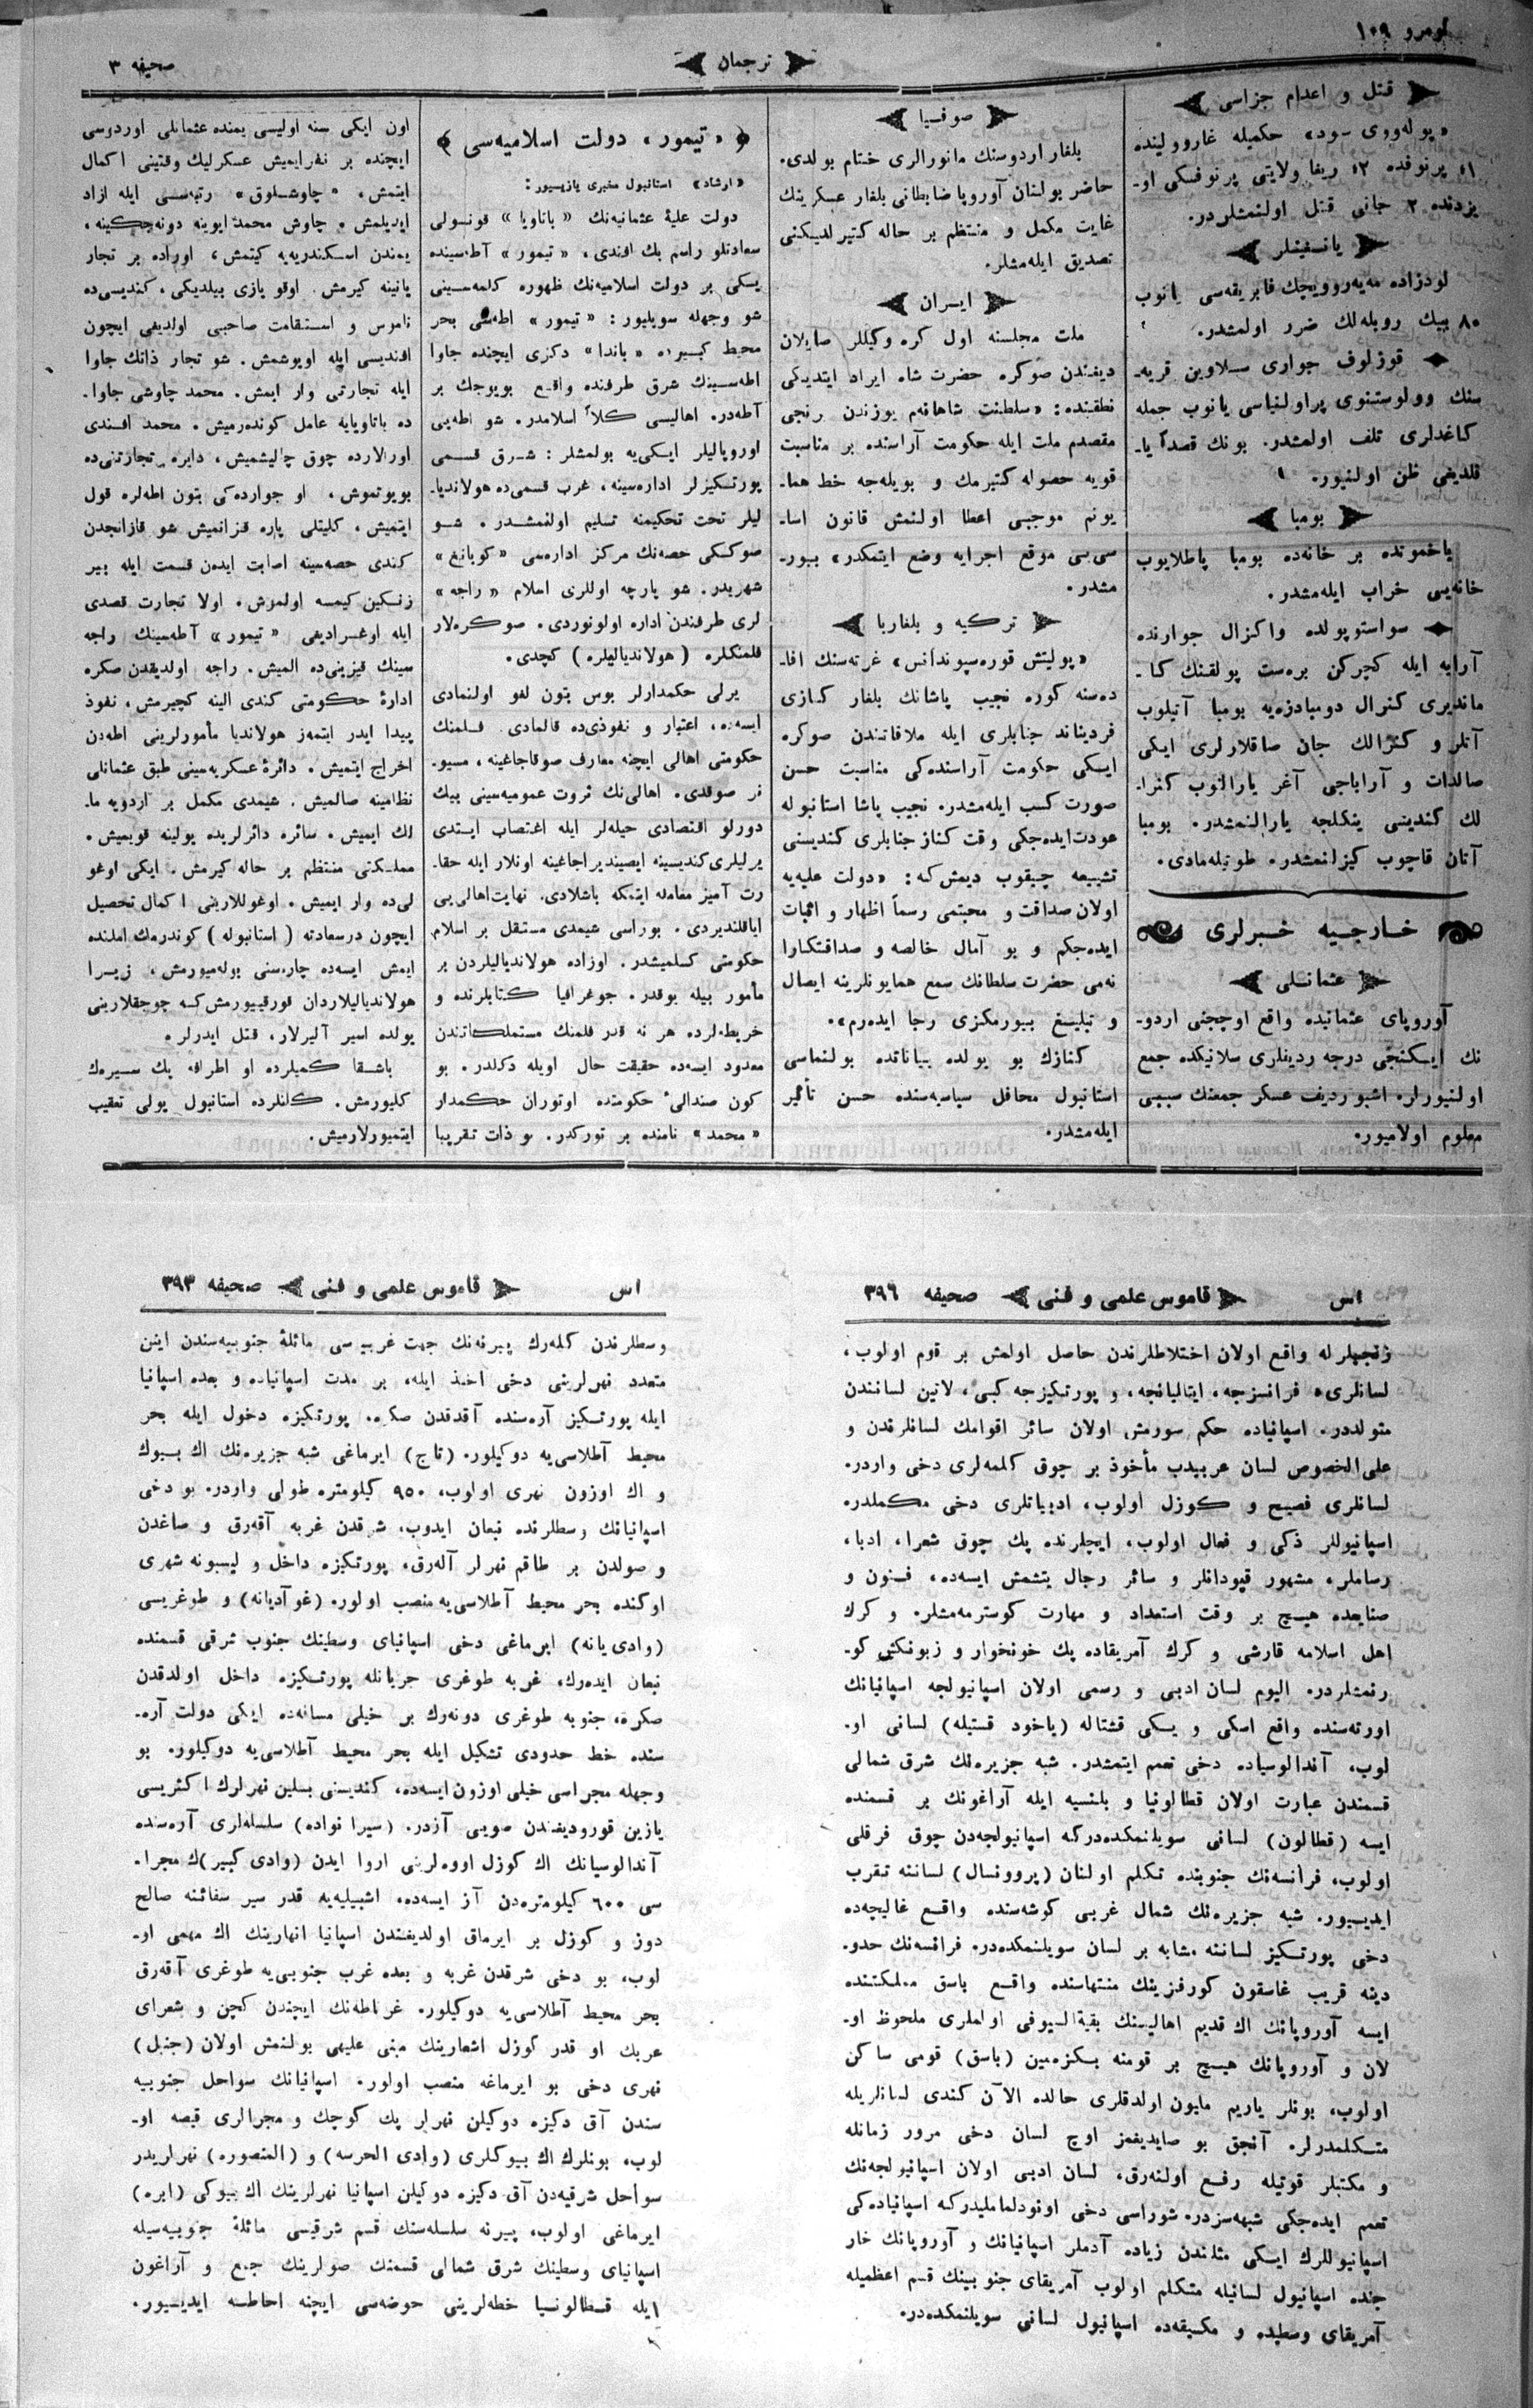 نومرو ١٠٩
ترجمان
صحیفه ٣
قتل و اعدام جزاسی
«پوله‌ووی سود» حکمیله غاروولینده
١، پرنوفده ٢، ریفا ولایتی پرنوفسکی او-
یزدنده ٢ جانی قتل اولنمشلردر.
یانغینلر
لودزاده مه‌یه‌روویچك فابریقه‌سی یانوب
٨٠ بیك روبله‌لك ضرر اولمشدر.
قوزلوف جواری سلاوین قریه-
سنك وولوستنوی پراولنیاسی یانوب جمله
کاغدلری تلف اولمشدر. بونك قصداً یا-
قلدیغی ظن اولنیور.
بومبا
یاخموتده بر خانه‌ده بومبا پاطلایوب
خانه‌یی خراب ایله‌مشدر.
سواستوپولده واکزال جوارنده
آرابه ایله کچرکن بره‌ست پولقنك کما-
ماندیری کنرال دومبادزه‌یه بومبا آتیلوب
آتلر و کنرالك جان صاقلارلری ایکی
صالدات و آراباجی آغر یارالنوب کنرا-
لك کندیسی ینکلجه یارالنمشدر. بومبا
آتان قاچوب کیزلنمشدر. طوتیله‌مادی.
خارجیه خبرلری
عثمانلی
آوروپای عثمانیده واقع اوچجنی اردو-
نك ایکنجی درجه ردیفلری سلانیکده جمع
اولنیورلر. اشبو ردیف عسکر جمعنك سببی
معلوم اولامیور.
صوفیا
بلغار اردوسنك مانورالری ختام بولدی.
حاضر بولنان آوروپا ضابطانی بلغار عسکرینك
غایت مکمل و منتظم بر حاله کتیرلدیکنی
تصدیق ایله‌مشلر.
ایران
ملت مجلسنه اول کره وکیللر صایلان
دیغندن صوکره حضرت شاه ایراد ایتدیکی
نطقنده: «سلطنت شاهانه‌م یوزندن رنجی
مقصدم ملت ایله حکومت آراسنده بر مناسبت
قویه حصوله کتیرمك و بویله‌جه خط هما-
یونم موجبی اعطا اولنمش قانون اسا-
سی‌یی موقع اجرایه وضع ایتمکدر» بیور-
مشدر.
ترکیه و بلغاریا
«پولیتش قوره‌سپوندانس» غزته‌سنك افا-
ده‌سنه کوره نجیب پاشانك بلغار کنازی
فردیناند جنابلری ایله ملاقاتندن صوکره
ایکی حکومت آراسنده‌کی مناسبت حسن
صورت کسب ایله‌مشدر. نجیب پاشا استانبوله
عودت‌ایده‌جکی وقت کناز جنابلری کندیسنی
تشییعه چیقوب دیمش‌که: «دولت علیه‌یه
اولان صداقت و محبتمی رسماً اظهار و اثبات
ایده‌جکم و بو آمال خالصه و صداقتکارا
نه‌می حضرت سلطانك سمع همایونلرینه ایصال
و تبلیغ بیورمکزی رجا ایده‌رم».
کنازك بو یولده بیاناتده بولنماسی
استانبول محافل سیاسیه‌سنده حسن تأثیر
ایله‌مشدر.
«تیمور» دولت اسلامیه‌سی
«ارشاد» استانبول مخبری یازییور:
دولت علیهٔ عثمانیه‌نك «باتاویا» قونسولی
سعادتلو راسم بك افندی، «تیمور» آطه‌سینده
یسکی بر دولت اسلامیه‌نك ظهوره کلمه‌سینی
شو وجهله سویلیور: «تیمور» اطه‌سی بحر
محیط کبیرده «باندا» دکزی ایچنده جاوا
اطه‌سینك شرق طرفنده واقع بویوجك بر
آطه‌در. اهالیسی کلاً اسلامدر. شو اطه‌یی
اوروپالیلر ایکی‌یه بولمشلر: شرق قسمی
پورتکیزلر اداره‌سینه، غرب قسمی‌ده هولاندیا-
لیلر تحت تحکیمنه تسلیم اولنمشدر. شو
صوکمی حصه‌نك مرکز اداره‌سی «کوپانغ»
شهریدر. شو پارچه اوللری اسلام «راجه»
لری طرفندن اداره اولونوردی. صوکره‌لار
فلمنکلره (هولاندیالیلره) کچدی.
یرلی حکمدارلر بوس بتون لغو اولنمادی
ایسه‌ده، اعتبار و نفوذی‌ده قالمادی. فلمنك
حکومتی اهالی ایچنه معارف صوقاجاغینه، مسیو-
نر صوقدی. اهالی‌نك ثروت عمومیه‌سینی بیك
دورلو اقتصادی حیله‌لر ایله اغتصاب ایتدی
یرلیلری کندیسینه ایصیندیراجاغینه اونلار ایله حقا-
رت آمیز معامله ایتمکه باشلادی. نهایت‌اهالی‌یی
ایاقلندیردی. بوراسی شیمدی مستقل بر اسلام
حکومتی کسلمیشدر. اوزاده هولاندیالیلردن بر
مأمور بیله یوقدر. جوغرافیا کتابلرنده و
خریطه‌لرده هر نه قدر فلمنك مستملکاتندن
معدود ایسه‌ده حقیقت حال اویله دکلدر. بو
کون صندالیٔ حکومتده اوتوران حکمدار
«محمد» نامنده بر تورکدر. بو ذات تقریبا
اون ایکی سنه اولیسی یمنده عثمانلی اوردوسی
ایچنده بر نفرایمیش عسکرلیك وقتینی اکمال
ایتمش، «چاوشلوق» رتبه‌سی ایله ازاد
ایدیلمش. چاوش محمدأیوینه دونه‌جکینه،
یمندن اسکندریه‌یه کیتمش، اوراده بر تجار
یانینه کیرمش. اوقو یازی بیلدیکی، کندیسی‌ده
ناموس و استقامت صاحبی اولدیغی ایچون
افندیسی ایله اویوشمش. شو تجار ذاتك جاوا
ایله تجارتی وار ایمش. محمد چاوشی جاوا-
ده باتاویایه عامل کوندرمیش. محمد افندی
اورالارده چوق چالیشمیش، دایره تجارتنی‌ده
بویوتموش، او جوارده‌کی بتون اطه‌لره قول
ایتمیش، کلیتلی پاره قزانمیش شو قازانجدن
کندی حصه‌سینه اصابت ایدن قسمت ایله بیر
زنکین کیمسه اولموش. اولا تجارت قصدی
ایله اوغرادیغی «تیمور» آطه‌سینك راجه
سینك قیزینی‌ده المیش. راجه اولدیقدن صکره
ادارهٔ حکومتی کندی الینه کچیرمش، نفوذ
پیدا ایدر ایتمه‌ز هولاندیا مأمورلرینی اطه‌دن
اخراج ایتمیش. دائرهٔ عسکریه‌سینی طبق عثمانلی
نظامینه صالمیش. شیمدی مکمل بر اردویه ما-
لك ایمیش. سائره دائرلریده یولینه قویمیش.
مملکتی منتظم بر حاله کیرمش. ایکی اوغو
لی‌ده وار ایمیش. اوغوللارینی اکمال تحصیل
ایچون درسعادته (استانبوله) کوندرمك املنده
ایمش ایسه‌ده چاره‌سنی بوله‌میورمش، زیرا
هولاندیالیلاردان قورقییورمش‌که چوجقلارینی
یولده اسیر آلیرلار، قتل ایدرلر.
باشقا کمیلرده او اطرافه بك سیره‌ك
کلیورمش. کلنلرده استانبول یولی تعقیب
ایتمیورلارمیش.
اس قاموس علمی و فنی صحیفه ٣٩٦
زنجیلر له واقع اولان اختلاطلرندن حاصل اولمش بر قوم اولوب،
لسانلری، فرانسزجه، ایتالیانجه، و پورتکیزجه کبی، لاتین لسانندن
متولددر. اسپانیاده حکم سورمش اولان سائر اقوامك لسانلرندن و
علی‌الخصوص لسان عربیدن مأخوذ بر چوق کلمه‌لری دخی واردر.
لسانلری فصیح و کوزل اولوب، ادبیاتلری دخی مکملدر.
اسپانیوللر ذکی و فعال اولوب، ایچلرنده پك چوق شعرا، ادبا،
رساملر، مشهور قپودانلر و سائر رجال یتشمش ایسه‌ده، فنون و
صنایعده هیچ بر وقت استعداد و مهارت کوسترمه‌مشلر. و کرك
اهل اسلامه قارشی و کرك آمریقاده پك خونخوار و زبونکش کو-
رنمشلردر. الیوم لسان ادبی و رسمی اولان اسپانیولجه اسپانیانك
اورته‌سنده واقع اسکی و یسکی قشتاله (یاخود قستیله) لسانی او-
لوب، آندالوسیاده دخی تعمم ایتمشدر. شبه جزیره‌نك شرق شمالی
قسمندن عبارت اولان قطالونیا و بلنسیه ایله آراغونك بر قسمنده
ایسه (قطالون) لسانی سویلنمکده‌درکه اسپانیولجه‌دن چوق فرقلی
اولوب، فرانسه‌نك جنوبنده تکلم اولنان (پرووانسال) لساننه تقرب
ایدییور. شبه جزیره‌نك شمال غربی کوشه‌سنده واقع غالیچه‌ده
دخی پورتکیز لساننه مشابه بر لسان سویلنمکده‌در. فرانسه‌نك حدو-
دینه قریب غاسقون کورفزینك منتهاسنده واقع باسق مملکتنده
ایسه آوروپانك اك قدیم اهالیسنك بقیة‌السیوفی اولملری ملحوظ او-
لان و آوروپانك هیچ بر قومنه بکزه‌مین (باسق) قومی ساکن
اولوب، بونلر یاریم مایون اولدقلری حالده الآن کندی لسانلریله
متکلمدرلر. آنجق بو صایدیغمز اوچ لسان دخی مرور زمانله
و مکتبلر قوتیله رفع اولنه‌رق، لسان ادبی اولان اسپانیولجه‌نك
تعمم ایده‌جکی شبهه‌سزدر. شوراسی دخی اونودلمامیلیدرکه اسپانیاده‌کی
اسپانیوللرك ایکی مثلندن زیاده آدملر اسپانیانك و آوروپانك خار
جنده اسپانیول لسانیله متکلم اولوب آمریقای جنوبینك قسم اعظمیله
آمریقای وسطیده و مکسیقه‌ده اسپانیول لسانی سویلنمکده‌در.
اس قاموس علمی و فنی صحیفه ٣٩٣
وسطلرندن کلمه‌رك پیرنه‌نك جهت غربیه‌سی مائلهٔ جنوبیه‌سندن اینن
متعدد نهرلرینی دخی اخذ ایله، بر مدت اسپانیاده و بعده اسپانیا
ایله پورتکیز آره‌سنده آقدقدن صکره، پورتکیزه دخول ایله بحر
محیط آطلاسی‌یه دوکیلور. (تاج) ایرماغی شبه جزیره‌نك اك بیوك
و اك اوزون نهری اولوب، ٩٥٠ کیلومتره طولی واردر. بو دخی
اسپانیانك وسطلرنده نبعان ایدوب، شرقدن غربه آقه‌رق و صاغدن
و صولدن بر طاقم نهرلر آله‌رق، پورتکیزه داخل و لیسبونه شهری
اوکنده بحر محیط آطلاسی‌یه منصب اولور. (غوآدیانه) و طوغریسی
(وادی یانه) ایرماغی دخی اسپانیای وسطینك جنوب شرقی قسمنده
نبعان ایده‌رك، غربه طوغری جریانله پورتکیزه داخل اولدقدن
صکره، جنوبه طوغری دونه‌رك بر خیلی مسافه‌ده ایکی دولت آره-
سنده خط حدودی تشکیل ایله بحر محیط آطلاسی‌یه دوکیلور. بو
وجهله مجراسی خیلی اوزون ایسه‌ده، کندیسنی بسلین نهرلرك اکثریسی
یازین قورودیغندن صویی آزدر. (سیرا نواده) سلسله‌لری آره‌سنده
آندالوسیانك اك کوزل اووه‌لرینی اروا ایدن (وادی کبیر)ك مجرا-
سی ٦٠٠ کیلومتره‌دن آز ایسه‌ده، اشبیلیه‌یه قدر سیر سفائنه صالح
دوز و کوزل بر ایرماق اولدیغندن اسپانیا انهارینك اك مهمی او-
لوب، بو دخی شرقدن غربه و بعده غرب جنوبی‌یه طوغری آقه‌رق
بحر محیط آطلاسی‌یه دوکیلور. غرناطه‌نك ایچندن کچن و شعرای
عربك او قدر کوزل اشعارینك مبنی علیهی بولنمش اولان (جنیل)
نهری دخی بو ایرماغه منصب اولور. اسپانیانك سواحل جنوبیه
سندن آق دکیزه دوکیلن نهرلر پك کوچك و مجرالری قیصه او-
لوب، بونلرك اك بیوکلری (وادی الحرسه) و (المنصوره) نهرلریدر
سواحل شرقیه‌دن آق دکیزه دوکیلن اسپانیا نهرلرینك اك بیوکی (ابره)
ایرماغی اولوب، پیرنه سلسله‌سنك قسم شرقیسی مائلهٔ جنوبیه‌سیله
اسپانیای وسطینك شرق شمالی قسمنك صولرینك جمع و آراغون
ایله قطالونسیا خطه‌لرینی حوضه‌سی ایچنه احاطه ایدییور.